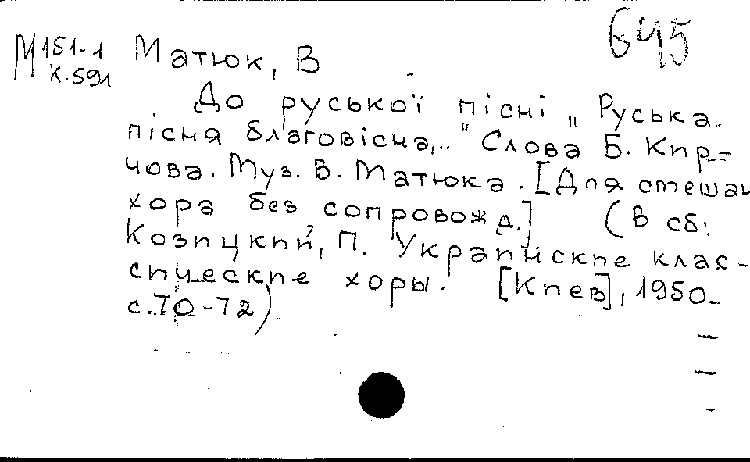 645
М 151-1 Матюк, В
К.591
До руської пісні „Руська
пісня благовісна..." Слова Б. Кир-
чова. Муз. В. Матюка. [Для смешан
хора без сопровожд.] (В сб:
Козицкий, П. Украинские клас-
сические хоры. [Киев], 1950.
с. 70-72)